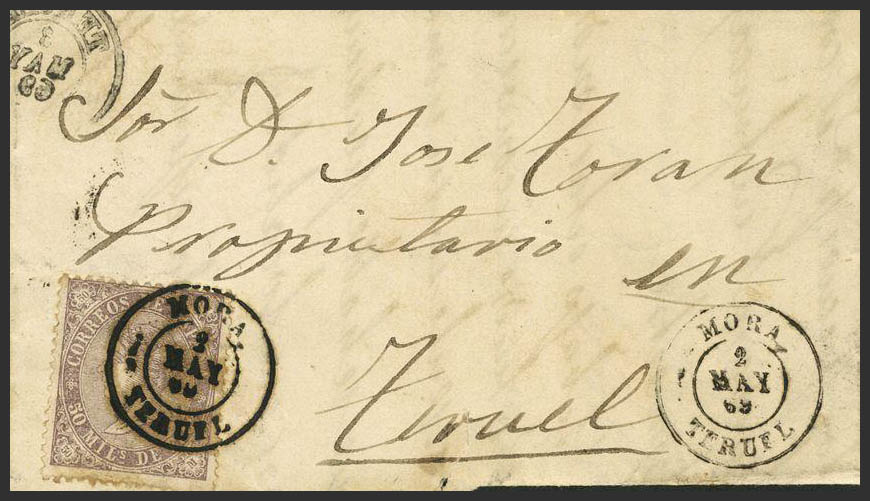 3
MAY
69
Sōr D. Jose Toran
Propietario
en
Teruel
CORREOS
50 MILS DE
MORA
2
MAY
69
TERUEL
MORA
2
MAY
69
TERUEL